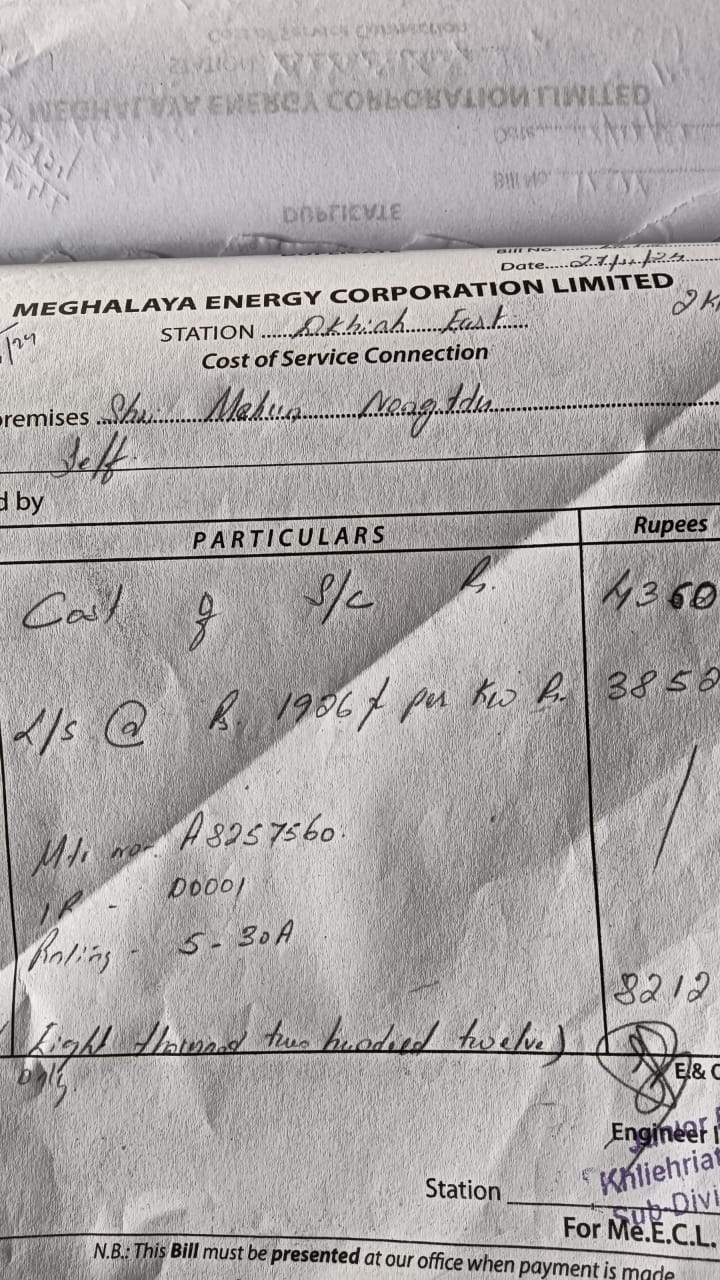 COST OF SERVICE CONNECTION
STATION
MEGHALAYA ENERGY CORPORATION LIMITED
Date
Bill No
DUPLICATE
Bill No.
Date.....27/11/24
MEGHALAYA ENERGY CORPORATION LIMITED
/24
STATION ......Dkhiah......East.....
Cost of Service Connection
premises Shri
Self
d by
PARTICULARS Rupees
Cost of S/c Rs. 4360
L/s @ Rs. 1926/- per Kw Rs. 3852
Mtr no- A8257560.
IR - 00001
Rating - 5-30A
8212
Eight thousand two hundred twelve)
only.
E & C
Engineer
Khliehriat
Station
Sub-Divi
For Me.E.C.L.
N.B.: This Bill must be presented at our office when payment is made